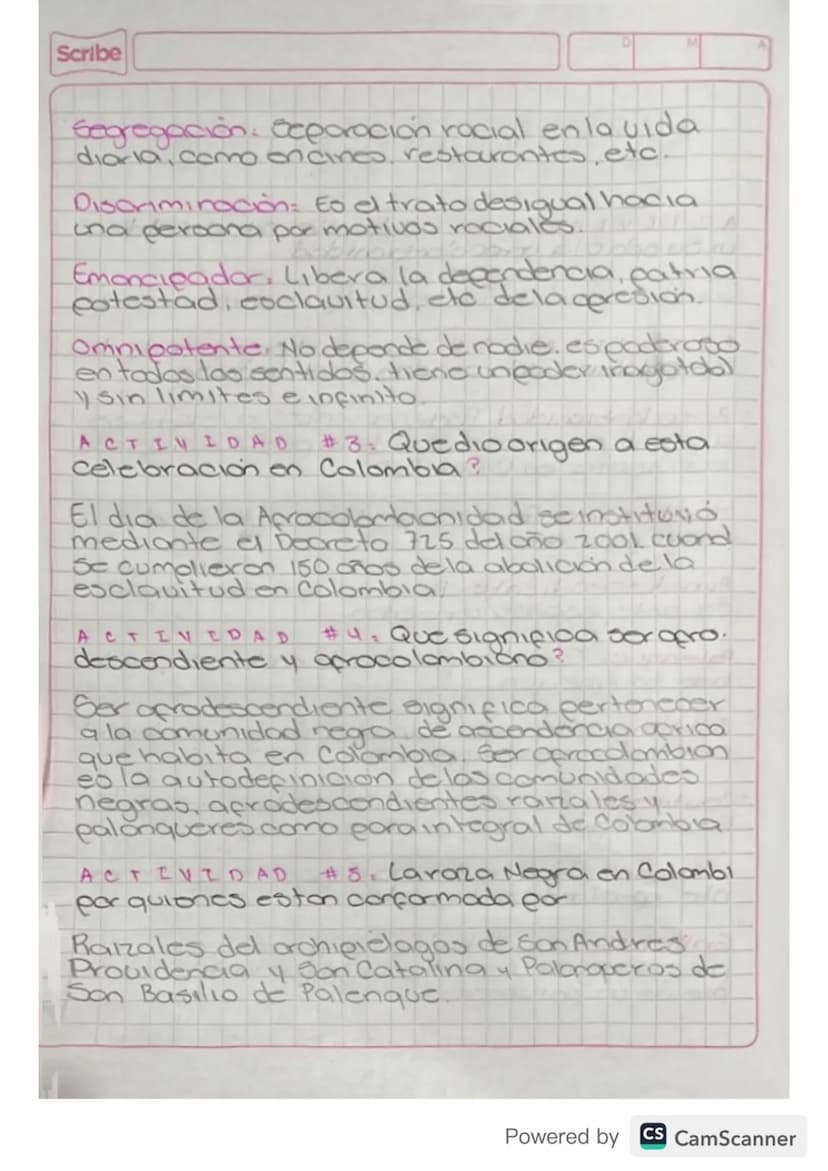 Scribe
D M A
Segregación: Separación racial en la vida
diaria, como en cines, restaurantes, etc.
Discriminación: Es el trato desigual hacia
una persona por motivos raciales.
Emancipador: Libera la dependencia, patria
potestad, esclavitud, etc de la opresión.
Omnipotente: No depende de nadie, es poderoso
en todos los sentidos, tiene un poder inagotabl
y sin limites e infinito.
ACTIVIDAD #3: Que dio origen a esta
celebración en Colombia?
El dia de la Afrocolombianidad se instituyó
mediante el Decreto 725 del año 2001. cuand
se cumplieron 150 años de la abolición de la
esclavitud en Colombia.
ACTIVIDAD #4: Que significa ser afro.
descendiente y afrocolombiano?
Ser afrodescendiente significa pertenecer
a la comunidad negra de ascendencia africa
que habita en Colombia. Ser afrocolombian
es la autodefinicion de las comunidades
negras, afrodescendientes raizales y
palonqueres como para integral de Colombia
ACTIVIDAD #5: La raza Negra en Colombi
por quienes estan conformada por
Raizales del archipielagos de San Andres
Providencia y San Catalina y Palanqueros de
San Basilio de Palenque.
Powered by CS CamScanner